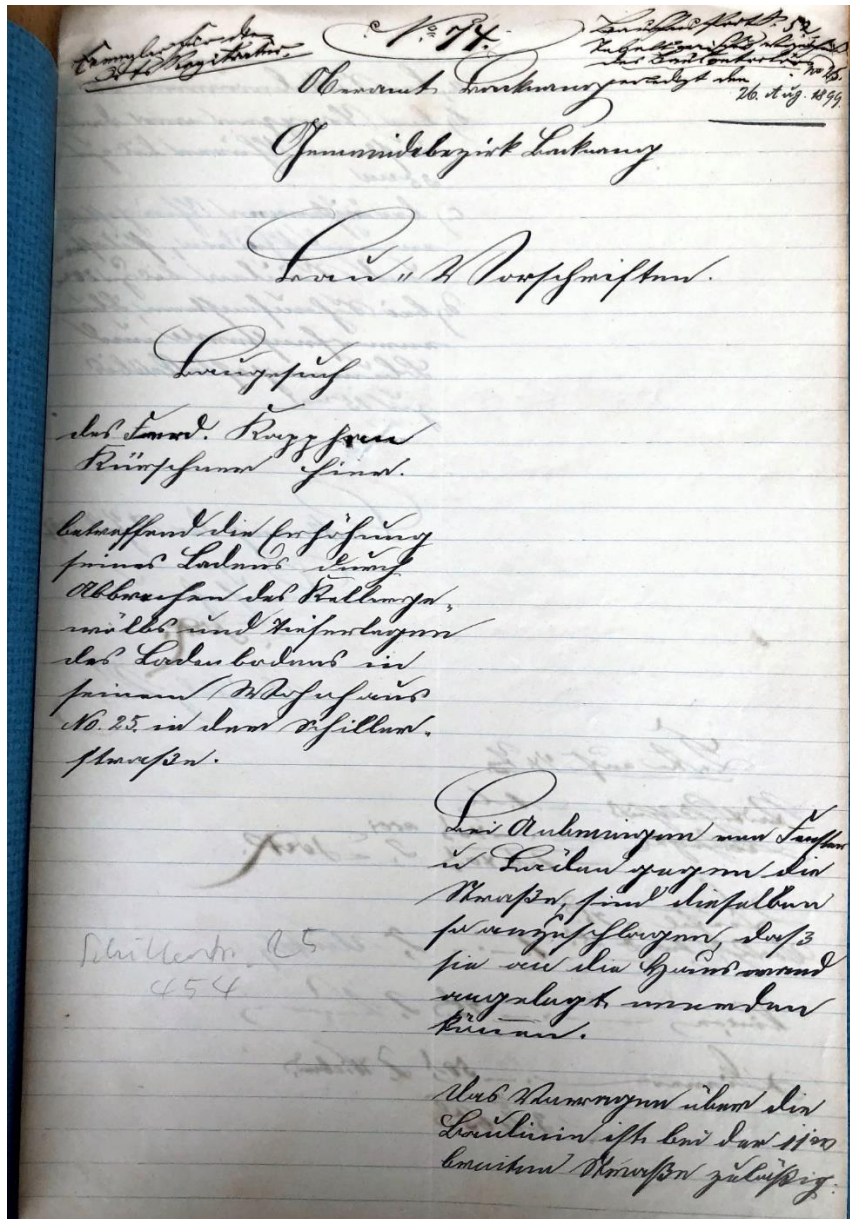 No. 74.
Exemplar für die
Orts Registratur.
Bauschau Prot. S. 52
des Baukontrol No 25.
erledigt den
26. Aug. 1899
Oberamt Backnang
Gemeindebezirk Backnang
Bau-Vorschriften.
Baugesuch
des Ferd. Kapphan
Kürschner hier.
betreffend die Erhöhung
seines Ladens durch
Abbrechen des Kellerge-
wölbs und Tieferlegen
des Ladenbodens in
seinem Wohnhaus
No. 25. in der Schiller-
straße.
Schillerstr. 25
454
Bei Anbringen von Fenster
u Läden gegen die
Straße, sind dieselben
so anzuschlagen, daß
sie an die Hauswand
angelegt werden
können.
Das Vorragen über die
Baulinie ist bei der 11 m
breiten Straße zuläßig.